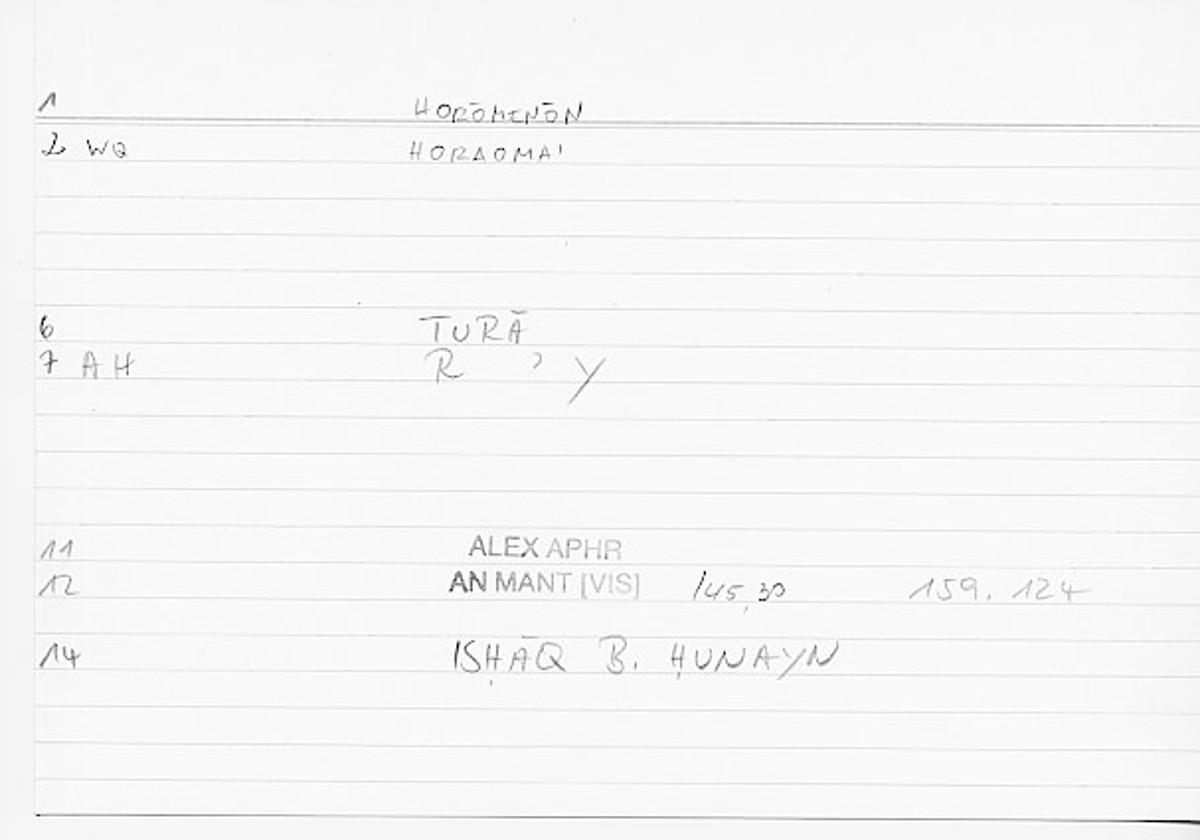 1 HORŌMENŌN
2 WQ HORAOMAI
6 TURĀ
7 AH R ʾ Y
11 ALEX APHR
12 AN MANT [VIS] 145,30 159.124
14 ISḤĀQ B. ḤUNAYN